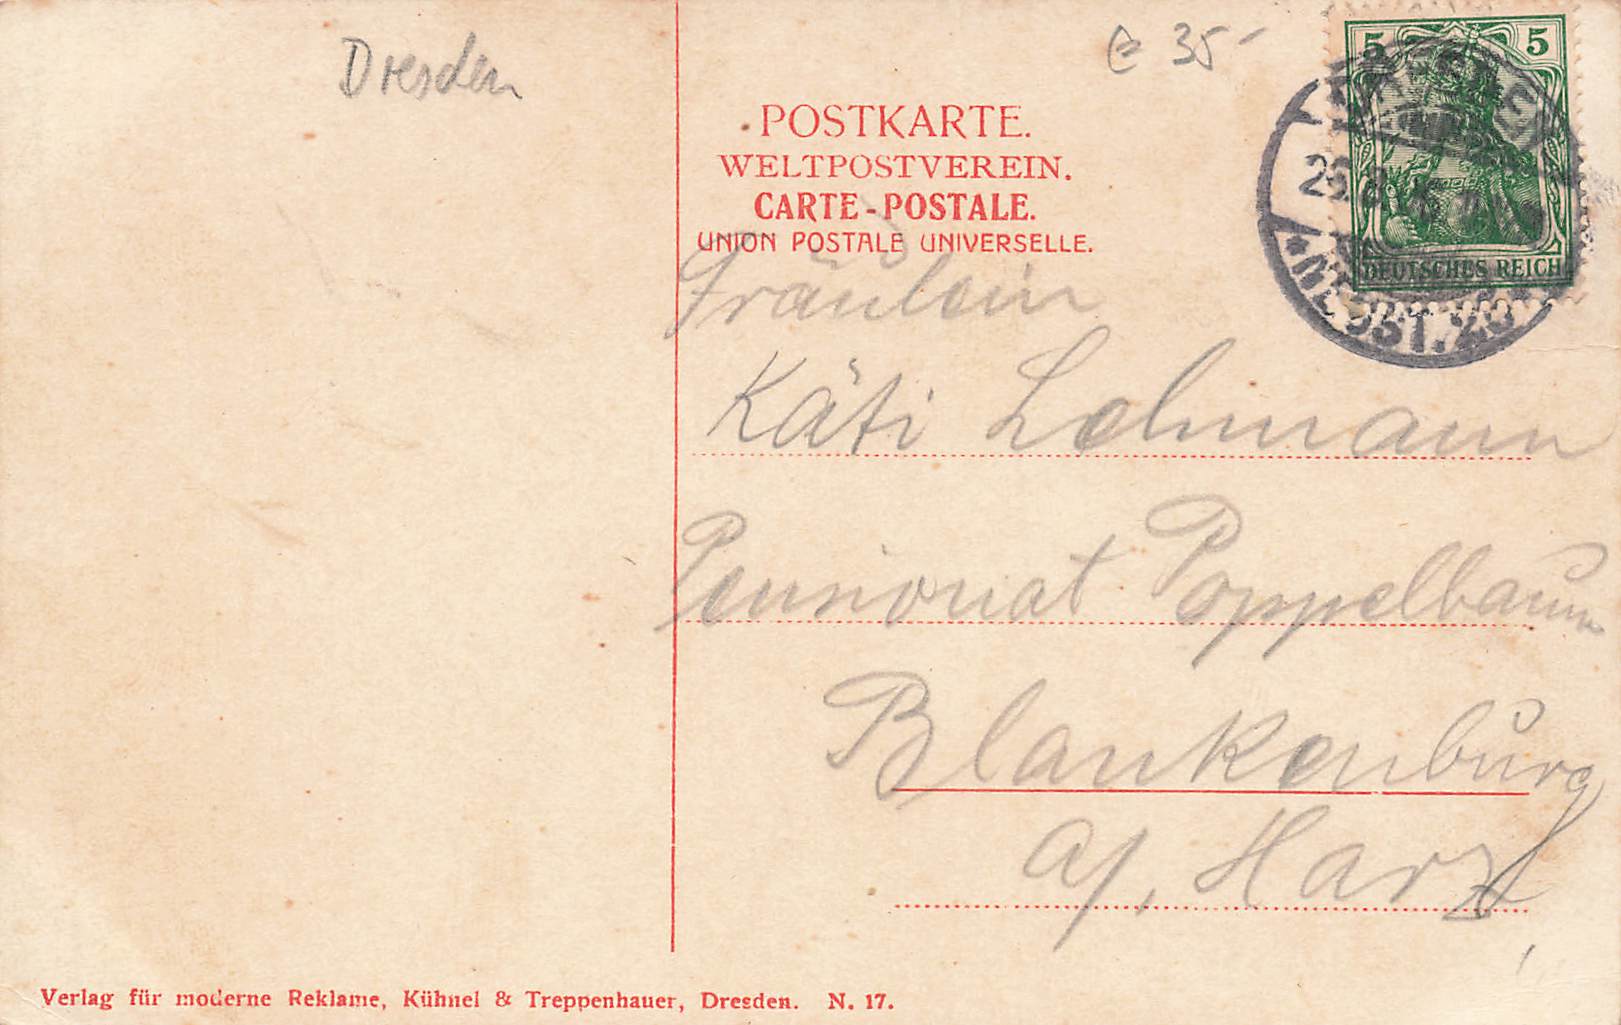 Dresden
35-
POSTKARTE.
WELTPOSTVEREIN.
CARTE-POSTALE.
UNION POSTALE UNIVERSELLE.
5 5
DEUTSCHES REICH
Fräulein
Käti Lehmann
Pensionat Poppelbaum
Blankenburg
a/, Harz
Verlag für moderne Reklame, Kühnel & Treppenhauer, Dresden. N. 17.